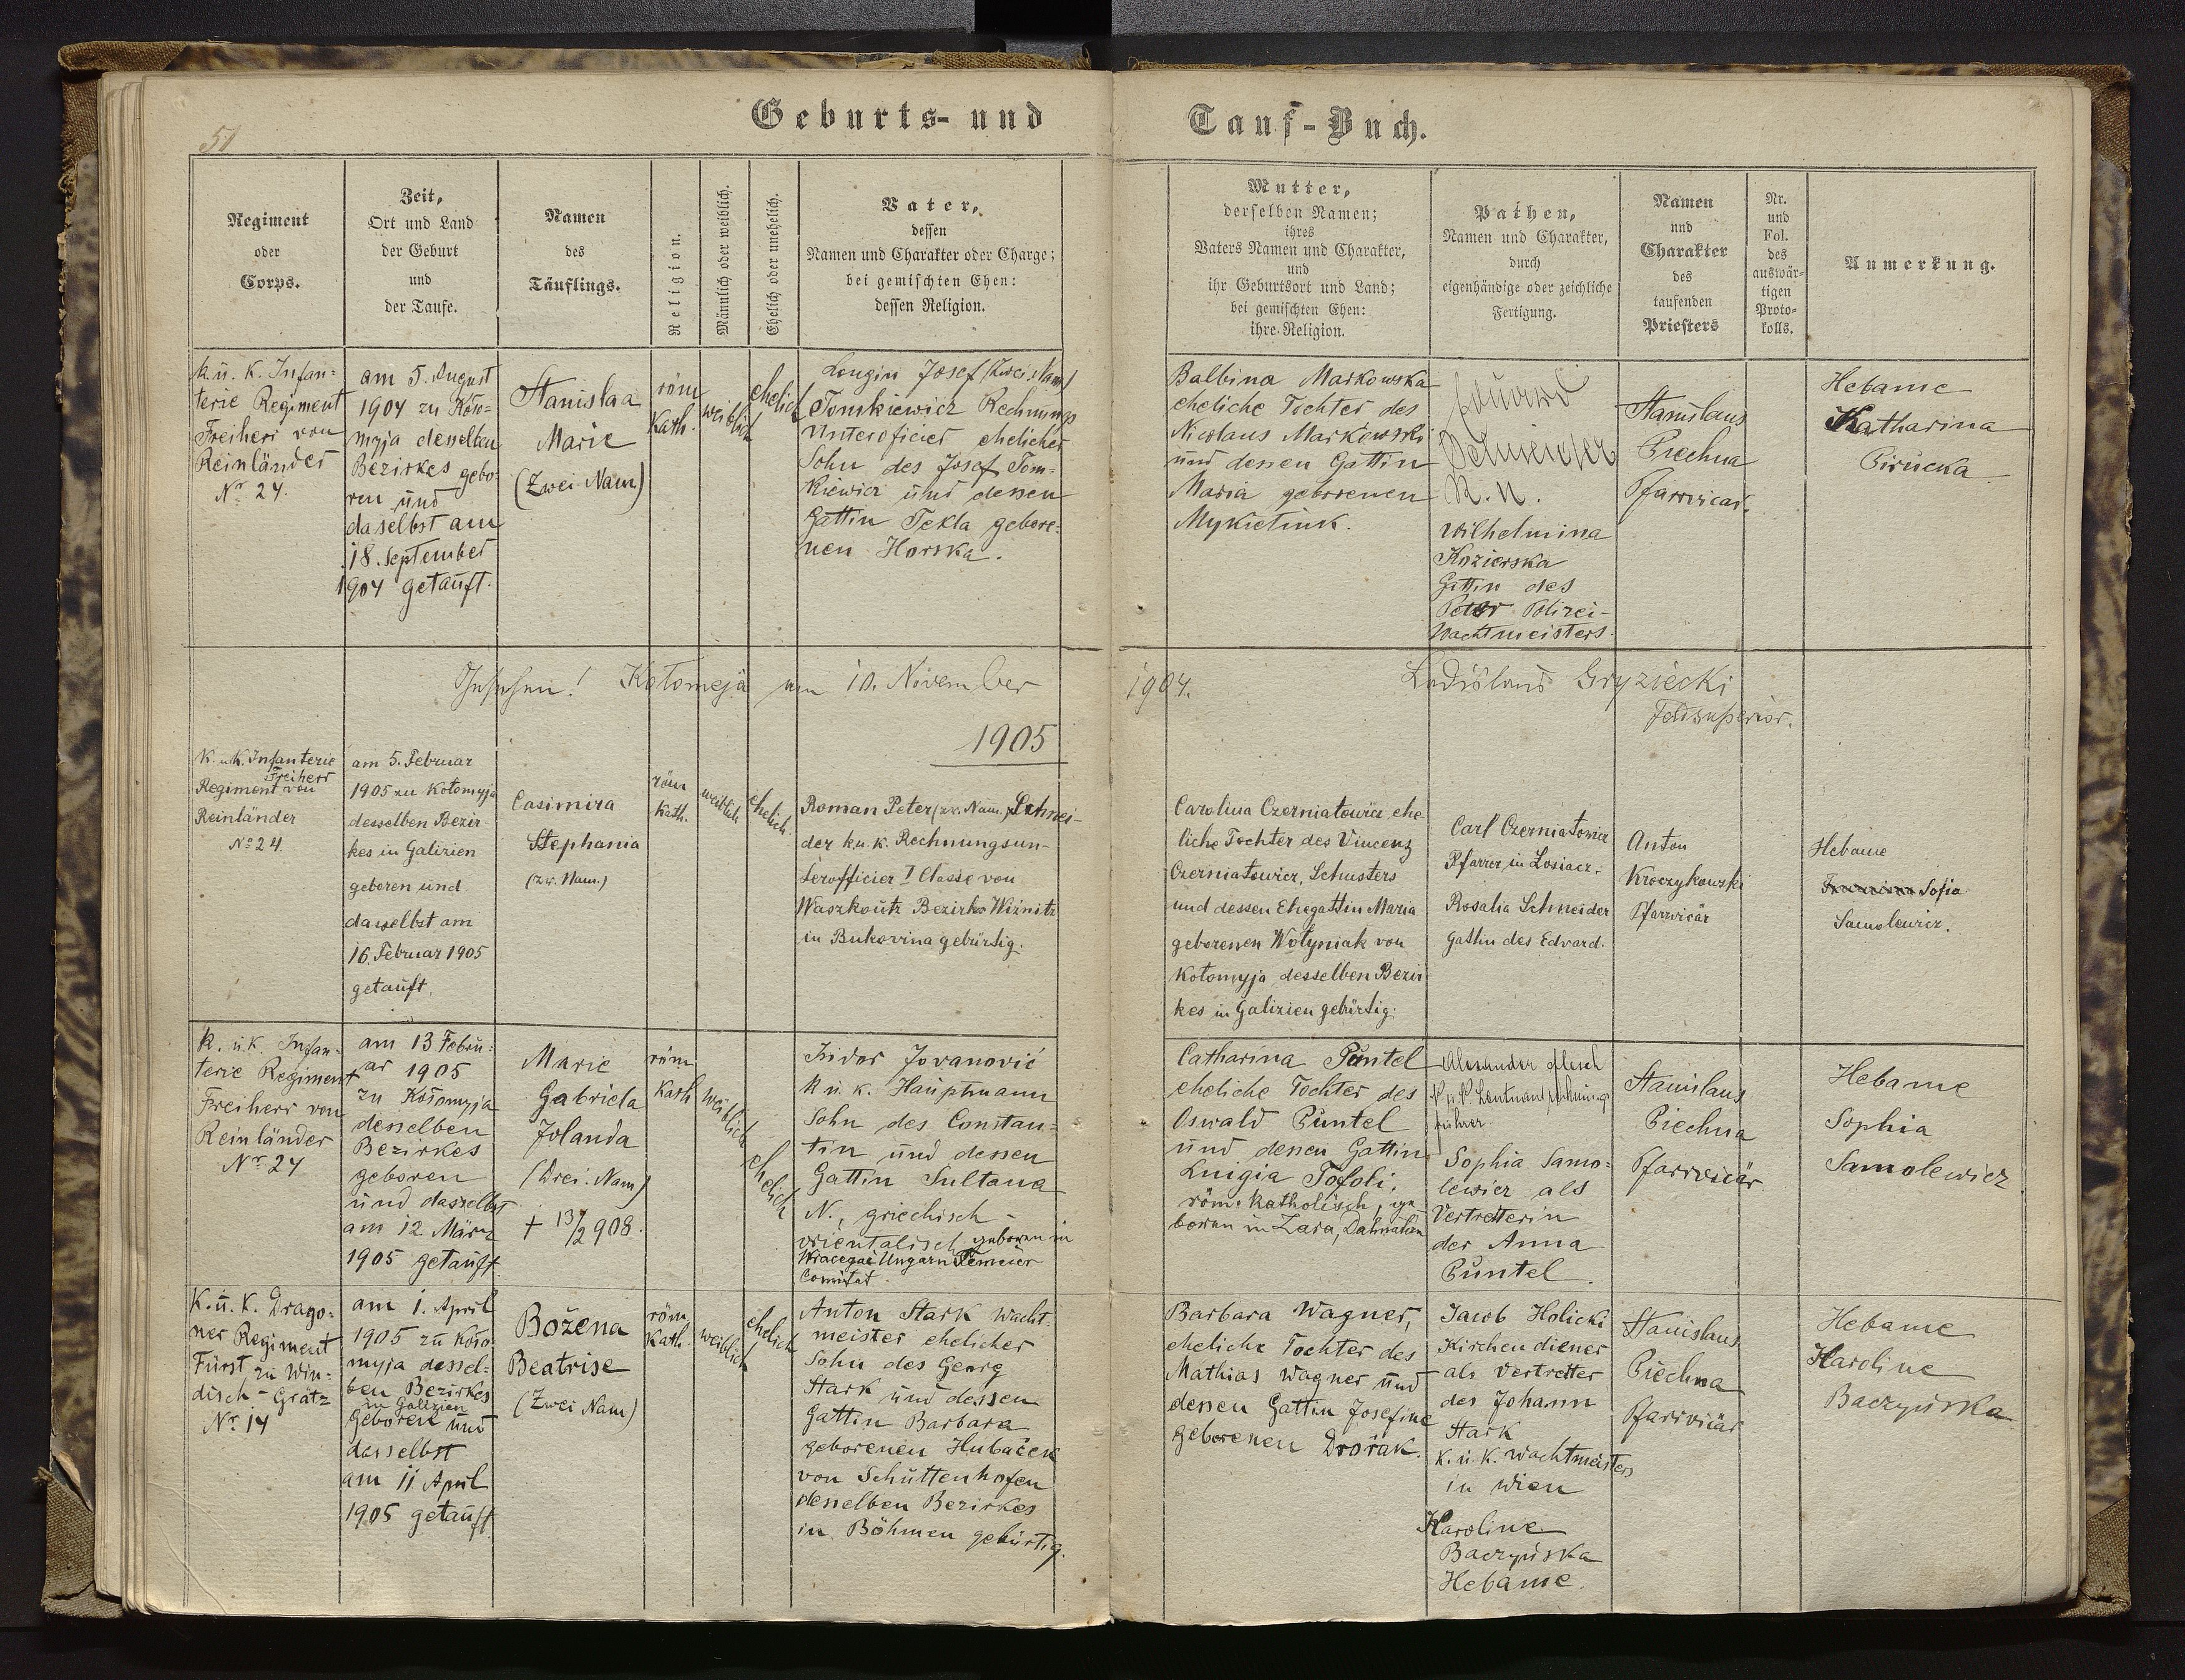 Geburts- und Tauf-Buch.
51
Regiment
oder
Corps.
Zeit,
Ort und Land
der Geburt
und
der Taufe.
Namen
des
Täuflings.
Religion.
Männlich oder weiblich.
Ehelich oder unehelich.
Vater,
dessen
Namen und Charakter oder Charge;
bei gemischten Ehen:
dessen Religion.
Mutter,
derselben Namen;
ihres
Vaters Namen und Charakter,
und
ihr Geburtsort und Land;
bei gemischten Ehen:
ihre Religion.
Pathen,
Namen und Charakter,
durch
eigenhändige oder zeichliche
Fertigung.
Namen
und
Charakter
des
taufenden
Priesters
Nr.
und
Fol.
des
auswär-
tigen
Proto-
kolls.
Anmerkung.
K. u. K. Infan-
terie Regiment
Freiherr von
Reinländer
Nr. 24.
am 5. August
1904 zu Koło-
myja desselben
Bezirkes gebo-
ren und
daselbst am
18. September
1904 getauft.
Stanislaa
Marie
(Zwei Nam)
röm
Kath.
weiblich
ehelich
Longin Josef (Zwei Nam)
Tomkiewicz Rechnungs
Unteroficier ehelicher
Sohn des Josef Tom-
kiewicz und dessen
Gattin Tekla gebore-
nen Horska.
Balbina Markowska
eheliche Tochter des
Nicolaus Markowski
und dessen Gattin
Maria geborenen
Mykietiuk.
Eduard
N. N.
Wilhelmina
Kozierska
Gattin des
Peter Polizei-
Wachtmeisters
Stanislaus
Piechna
Pfarrvicar.
Hebame
Katharina
Pirucka
Gesehen! Kołomeja am 10. November 1904.
Ladislaus Gryziecki
Feldsuperior.
1905
K. u. K. Infanterie
Freiherr
Regiment von
Reinländer
No 24.
am 5. Februar
1905 zu Kołomyja
desselben Bezir-
kes in Galizien
geboren und
dasselbst am
16. Februar 1905
getauft.
Casimira
Stephania
(zw. Nam.)
röm
Kath.
weiblich
ehelich.
Roman Peter (zw. Nam.) Schnei-
der k. u. k. Rechnungsun-
terofficier I Classe von
Waszkoutz Bezirks Wiźnitz
in Bukovina gebürtig.
Carolina Czerniatowicz ehe-
liche Tochter des Vincenz
Czerniatowicz, Schusters
und dessen Ehegattin Maria
geborenen Wołyniak von
Kołomyja desselben Bezir-
kes in Galizien gebürtig.
Carl Czerniatowicz
Pfarrer in Losiacz.
Rosalia Schneider
Gattin des Edvard.
Anton
Kroczykowski
Pfarrvicär
Hebame
Sofia
Samolewicz.
K. u. K. Infan-
terie Regiment
Freiherr von
Reinländer
Nr. 24
am 13 Febru-
ar 1905
zu Kołomyja
desselben
Bezirkes
geboren
und dasselbst
am 12. März
1905 getauft.
Marie
Gabriela
Jolanda
(Drei. Nam)
+ 13/2 908.
röm
Kath
weiblich
ehelich
Isidor Jovanović
K u. k. Hauptmann
Sohn des Constan-
tin und dessen
Gattin Sultana
N., griechisch-
orientalisch geboren in
Wracegai Ungarn Temeser
Comitat.
Catharina Puntel
eheliche Tochter des
Oswald Puntel
und dessen Gattin
Luigia Tofoli,
röm. katholisch, ge-
boren in Zara, Dalmatien
Alexander Flesch
K u. K. Leutnant rechnungs
führer
Sophia Samo-
lewicz als
Vertretterin
der Anna
Puntel.
Stanislaus
Piechna
Pfarrvicär
Hebame
Sophia
Samolewicz
K. u. K. Drago-
ner Regiment
Fürst zu Win-
disch-Grätz
Nr. 14
am 1. April
1905 zu Koło-
myja dessel-
ben Bezirkes
in Galizien
geboren und
dasselbst
am 11 April
1905 getauft.
Božena
Beatrise
(Zwei Nam)
röm
Kath.
weiblich
ehelich
Anton Stark Wacht-
meister ehelicher
Sohn des Georg
Stark und dessen
Gattin Barbara
geborenen Hubaček
von Schüttenhofen
desselben Bezirkes
in Böhmen gebürtig.
Barbara Wagner,
eheliche Tochter des
Mathias Wagner und
dessen Gattin Josefine
geborenen Dvořak.
Jacob Holicki
Kirchendiener
als Vertretter
des Johann
Stark
K. u. K. Wachtmeisters
in Wien
Karoline
Baczyńska
Hebame.
Stanislaus
Piechna
Pfarrvicär
Hebame
Karoline
Baczyńska